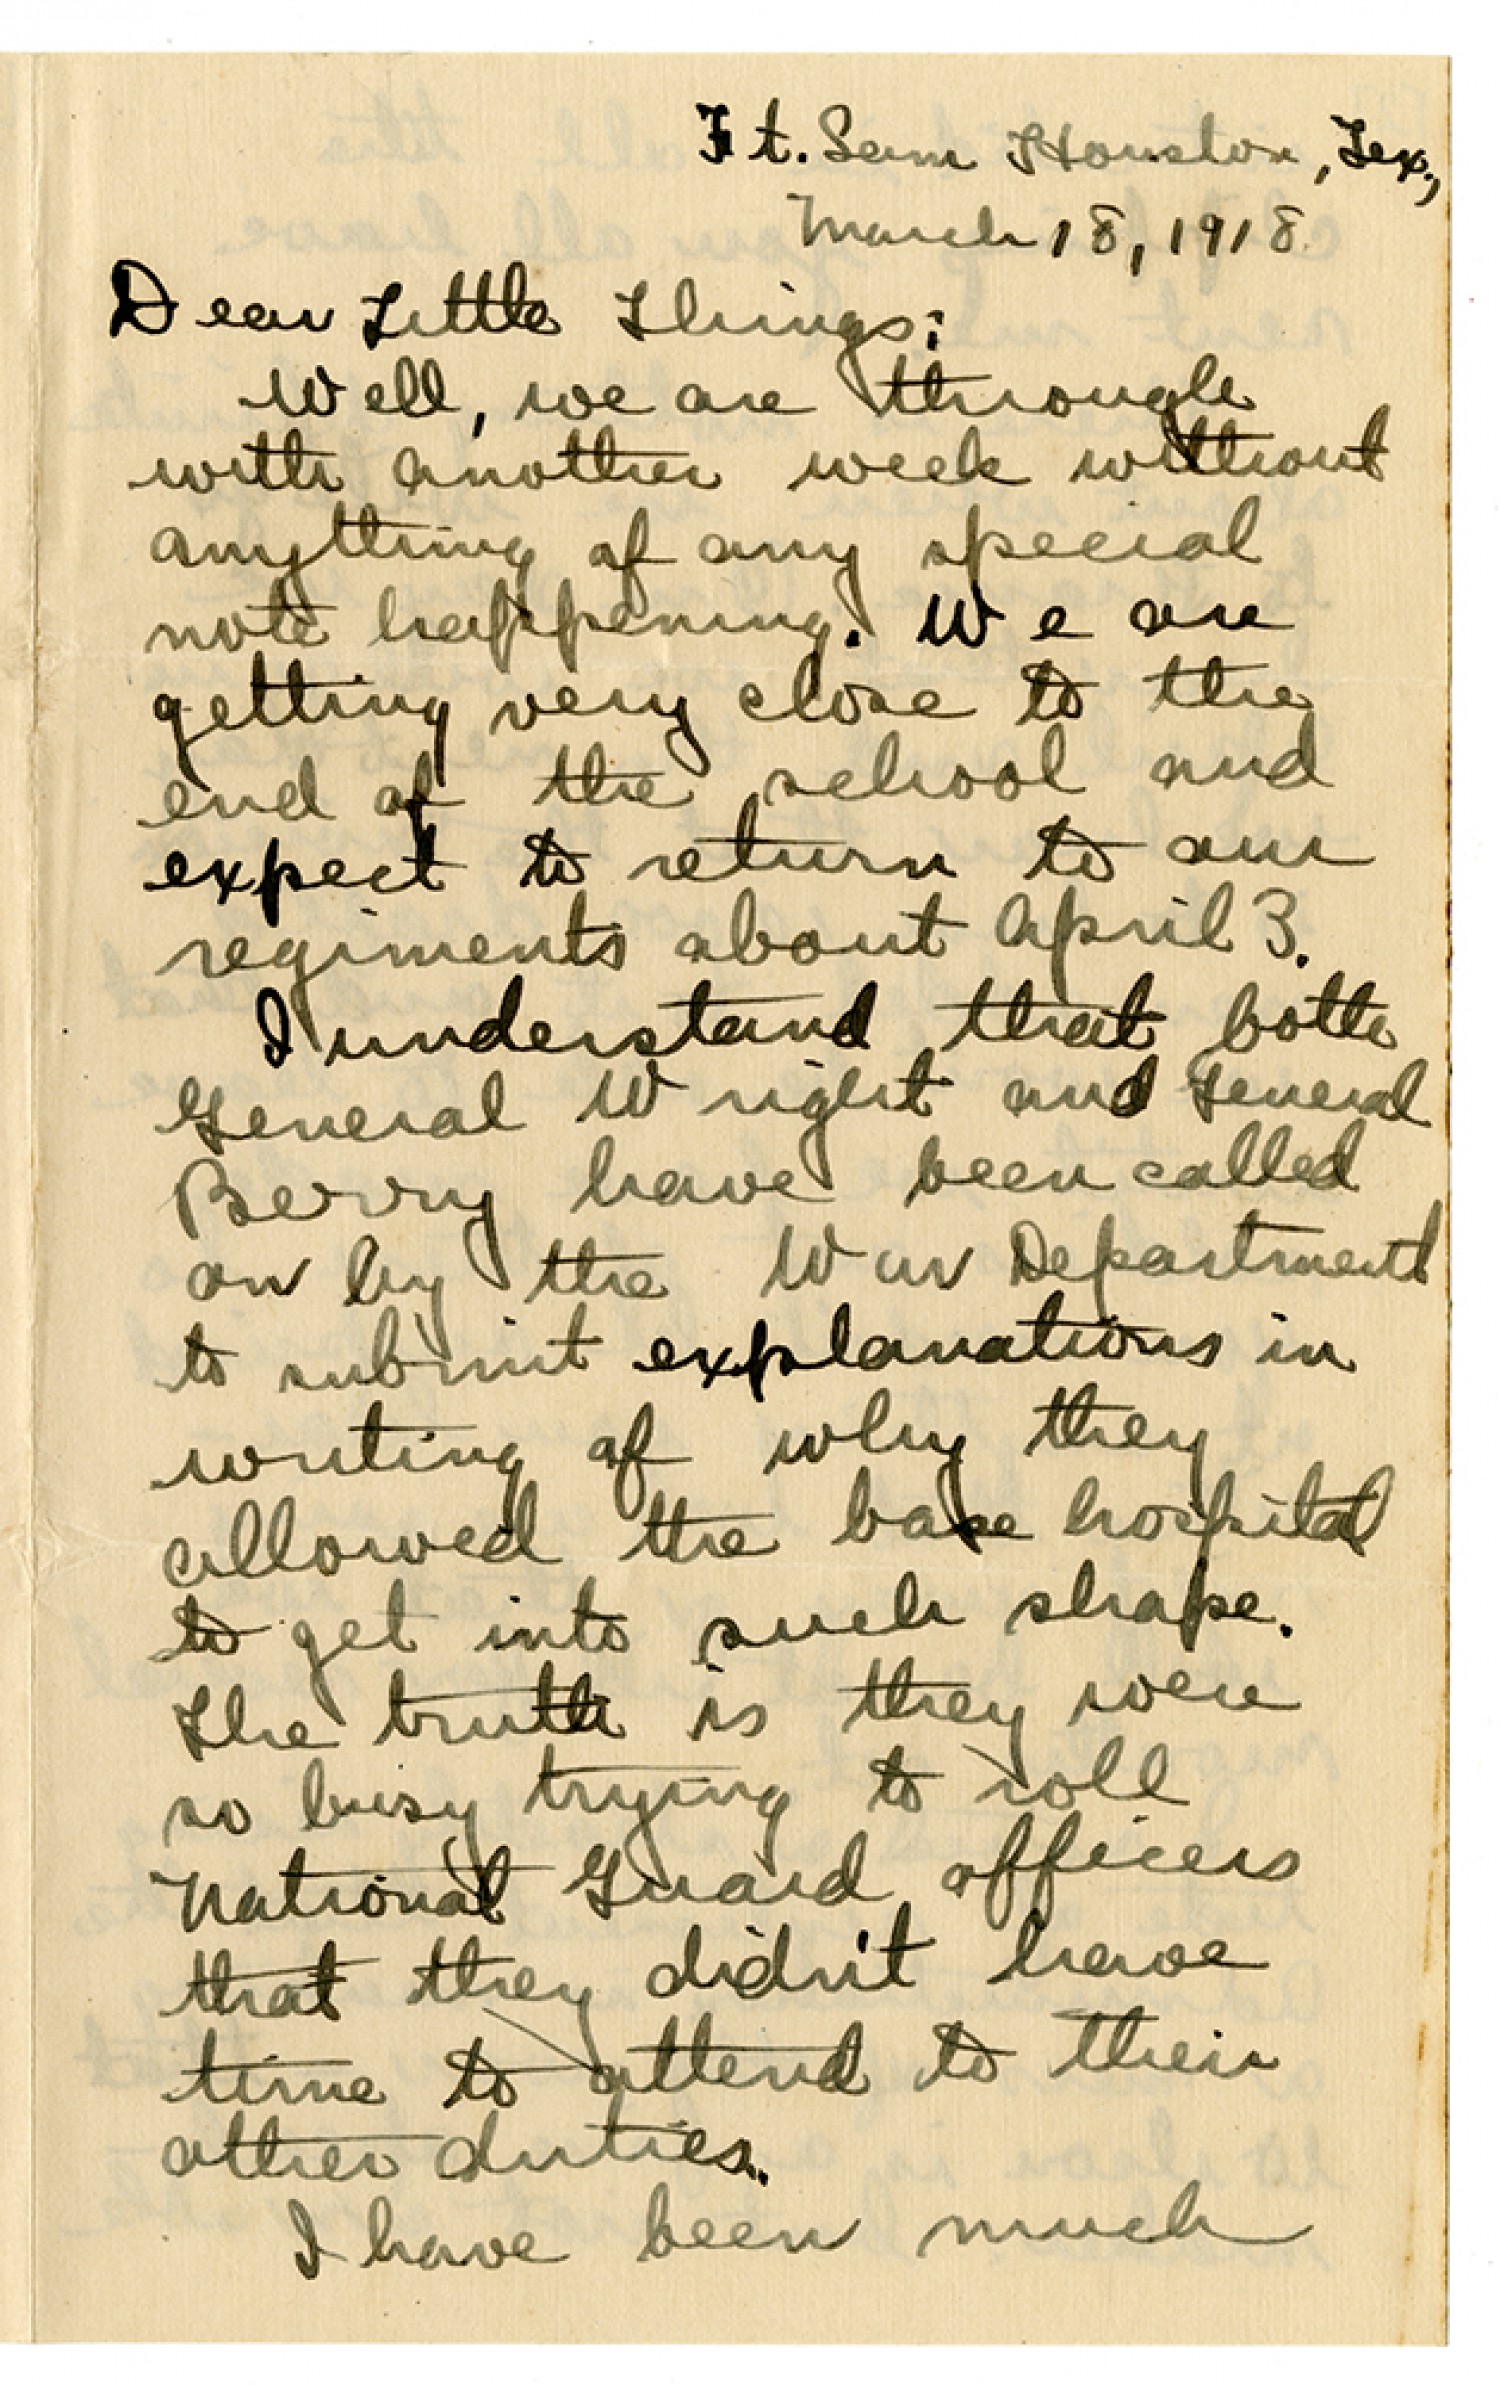 Ft. Sam Houston, Tex.,
March 18, 1918.
Dear Little Things:
Well, we are through
with another week without
anything of any special
note happening. We are
getting very close to the
end of the school and
expect to return to our
regiments about April 3.
I understand that both
General Wright and General
Berry have been called
on by the War Department
to submit explanations in
writing of why they
allowed the base hospital
to get into such shape.
The truth is they were
so busy trying to roll
National Guard officers
that they didn't have
time to attend to their
other duties.
I have been much